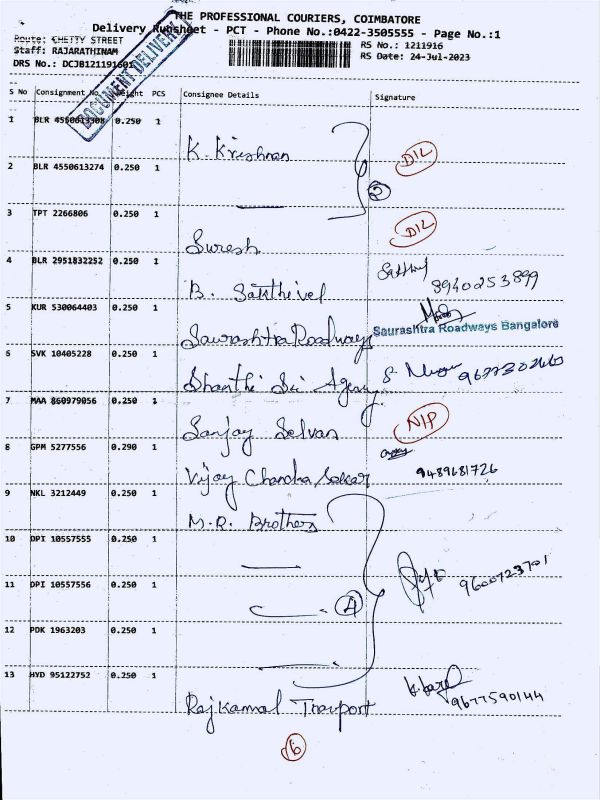 THE PROFESSIONAL COURIERS, COIMBATORE
Delivery Runsheet - PCT - Phone No.:0422-3505555 - Page No.:1
Route: CHETTY STREET
RS No.: 1211916
Staff: RAJARATHINAM
RS Date: 24-Jul-2023
DRS No.: DCJB121191601
DOCUMENT DELIVERY
S No Consignment No. Weight PCS Consignee Details Signature
1 BLR 4550613308 0.250 1
K. Krishnan
D/L
2 BLR 4550613274 0.250 1
2
3 TPT 2266806 0.250 1
Suresh
D/L
4 BLR 2951832252 0.250 1
B. Sakthivel
Sakthivel
8940253899
5 KUR 530064403 0.250 1
Saurashtra Roadways
Saurashtra Roadways Bangalore
6 SVK 10405228 0.250 1
Shanthi Sri Agency
7 MAA 860979056 0.250 1
Sanjay Selvan
N/P
8 GPM 5277556 0.290 1
Vijay Chandra Sekar
9489681726
9 NKL 3212449 0.250 1
M.R. Brothers
10 DPI 10557555 0.250 1
9600723701
11 DPI 10557556 0.250 1
4
12 PDK 1963203 0.250 1
13 HYD 95122752 0.250 1
Rajkamal Tranport
9677590144
6